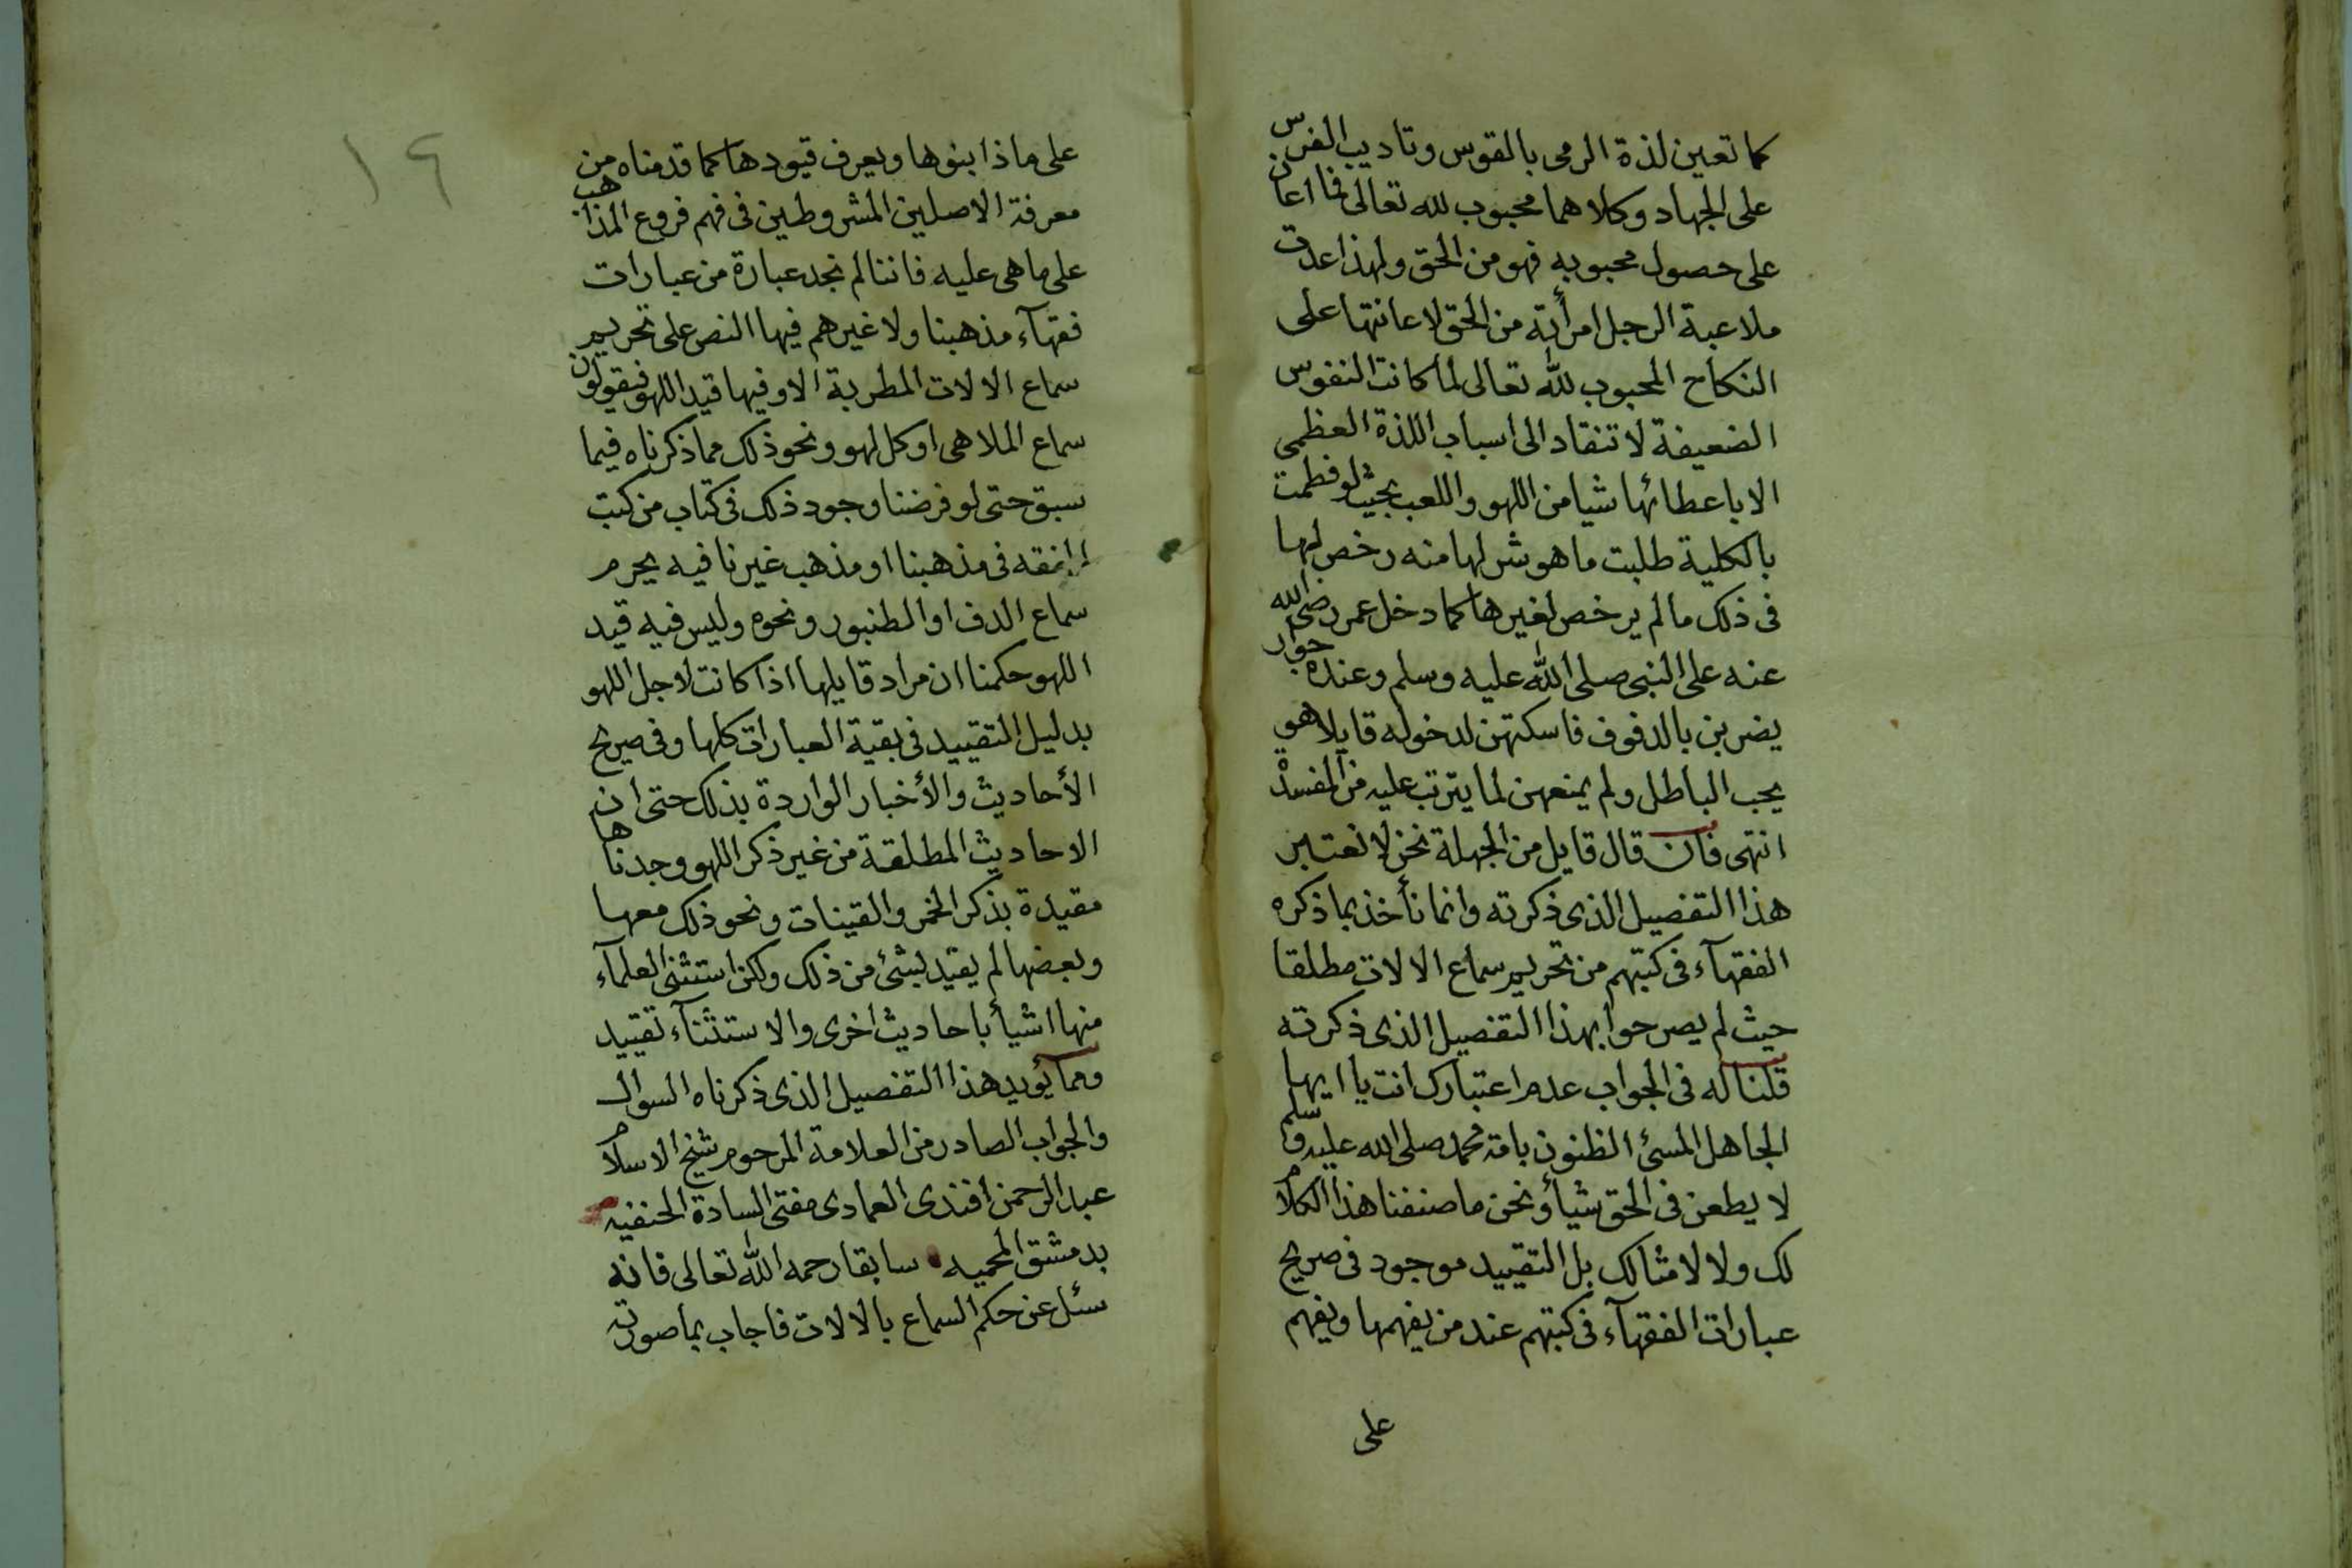 كما تعين لذة الرمى بالقوس وتاديب الفرس
على الجهاد وكلاهما محبوب لله تعالى فما اعان
على حصول محبوبه فهو من الحق ولهذا عدت
ملاعبة الرجل امرأته من الحق لاعانتها على
النكاح المحبوب لله تعالى لما كانت النفوس
الضعيفة لا تنقاد الى اسباب اللذة العظمى
الا باعطائها شيا من اللهو واللعب بحيث لو فطمت
بالكلية طلبت ما هو شر لها منه رخص لها
فى ذلك مالم يرخص لغيرها كما دخل عمر رضى الله
عنه على النبى صلى الله عليه وسلم وعنده جوار
يضربن بالدفوف فاسكتهن لدخوله قايلا هو
يحب الباطل ولم يمنعهن لما يترتب عليه من المفسدة
انتهى فان قال قايل من الجهلة نحن لا نعتبر
هذا التفصيل الذى ذكرته وانما نأخذ بما ذكره
الفقهآء فى كتبهم من تحريم سماع الالات مطلقا
حيث لم يصرحوا بهذا التفصيل الذى ذكرته
قلنا له فى الجواب عدم اعتبارك انت يا ايها
الجاهل المسئ الظنون بامة محمد صلى الله عليه وسلم
لا يطعن فى الحق شيأ ونحن ما صنفنا هذا الكلام
لك ولا لامثالك بل التقييد موجود فى صريح
عبارات الفقهآء فى كتبهم عند من يفهمها ويفهم
على
١٩
على ماذا بنوها ويعرف قيودها كما قدمناه من
معرفة الاصلين المشروطين فى فهم فروع المذاهب
على ما هى عليه فاننا لم نجد عبارة من عبارات
فقهآء مذهبنا ولا غيرهم فيها النص على تحريم
سماع الالات المطربة الا وفيها قيد اللهو فيقولون
سماع الملاهى او كل لهو ونحو ذلك مما ذكرناه فيما
سبق حتى لو فرضنا وجود ذلك فى كتاب من كتب
الفقه فى مذهبنا او مذهب غيرنا فيه يحرم
سماع الدف او الطنبور ونحوه وليس فيه قيد
اللهو حكمنا ان مراد قايلها اذا كانت لاجل اللهو
بدليل التقييد فى بقية العبارات كلها وفى صريح
الأحاديث والأخبار الواردة بذلك حتى ان
الاحاديث المطلقة من غير ذكر اللهو وجدناها
مقيدة بذكر الخمر والقينات ونحو ذلك معها
وبعضها لم يقيد بشئ من ذلك ولكن استثنى العلمآء
منها اشيأ باحاديث اخرى والاستثنآء تقييد
ومما يؤيد هذا التفصيل الذى ذكرناه السوال
والجواب الصادر من العلامة المرحوم شيخ الاسلام
عبد الرحمن افندى العمادى مفتى السادة الحنفيه
بدمشق المحميه سابقا رحمه الله تعالى فانه
سئل عن حكم السماع بالالات فاجاب بما صورته